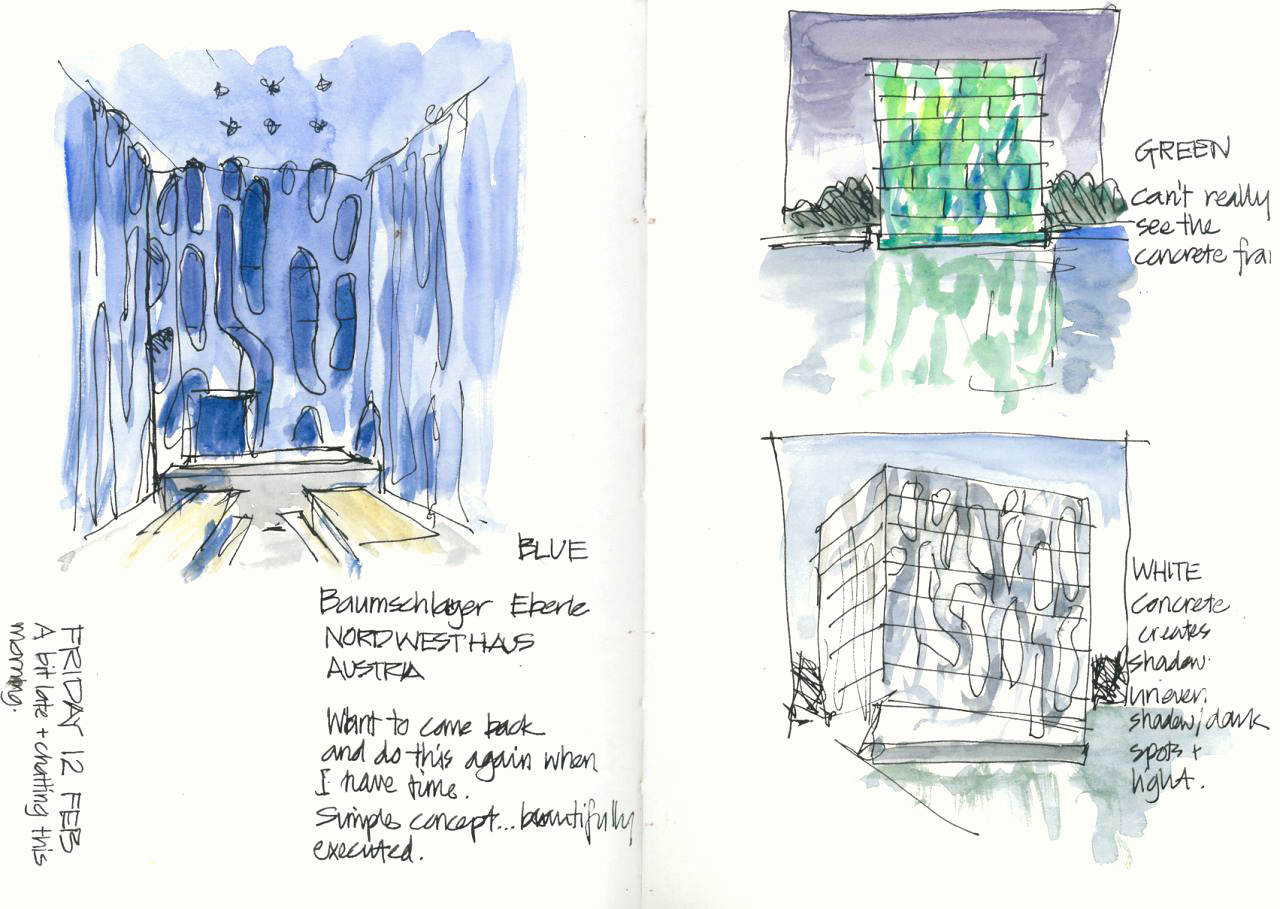 BLUE
Baumschlager Eberle
NORDWESTHAUS
AUSTRIA
Want to come back
and do this again when
I have time.
Simple concept... beautifully
executed.
FRIDAY 12 FEB
A bit late + chatting this
morning.
GREEN
can't really
see the
concrete fra
WHITE
Concrete
creates
shadow.
uneven.
shadow/dark
spots +
light.